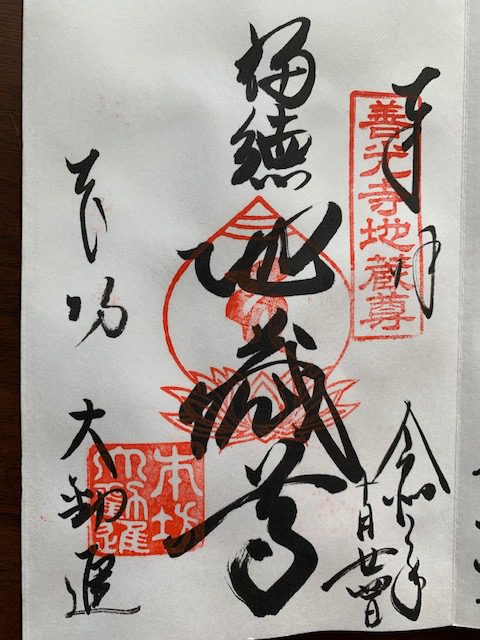 奉拝
善光寺地蔵尊
令和 年
十月廿四日
福徳
地蔵尊
大勧進
本坊
大勧進